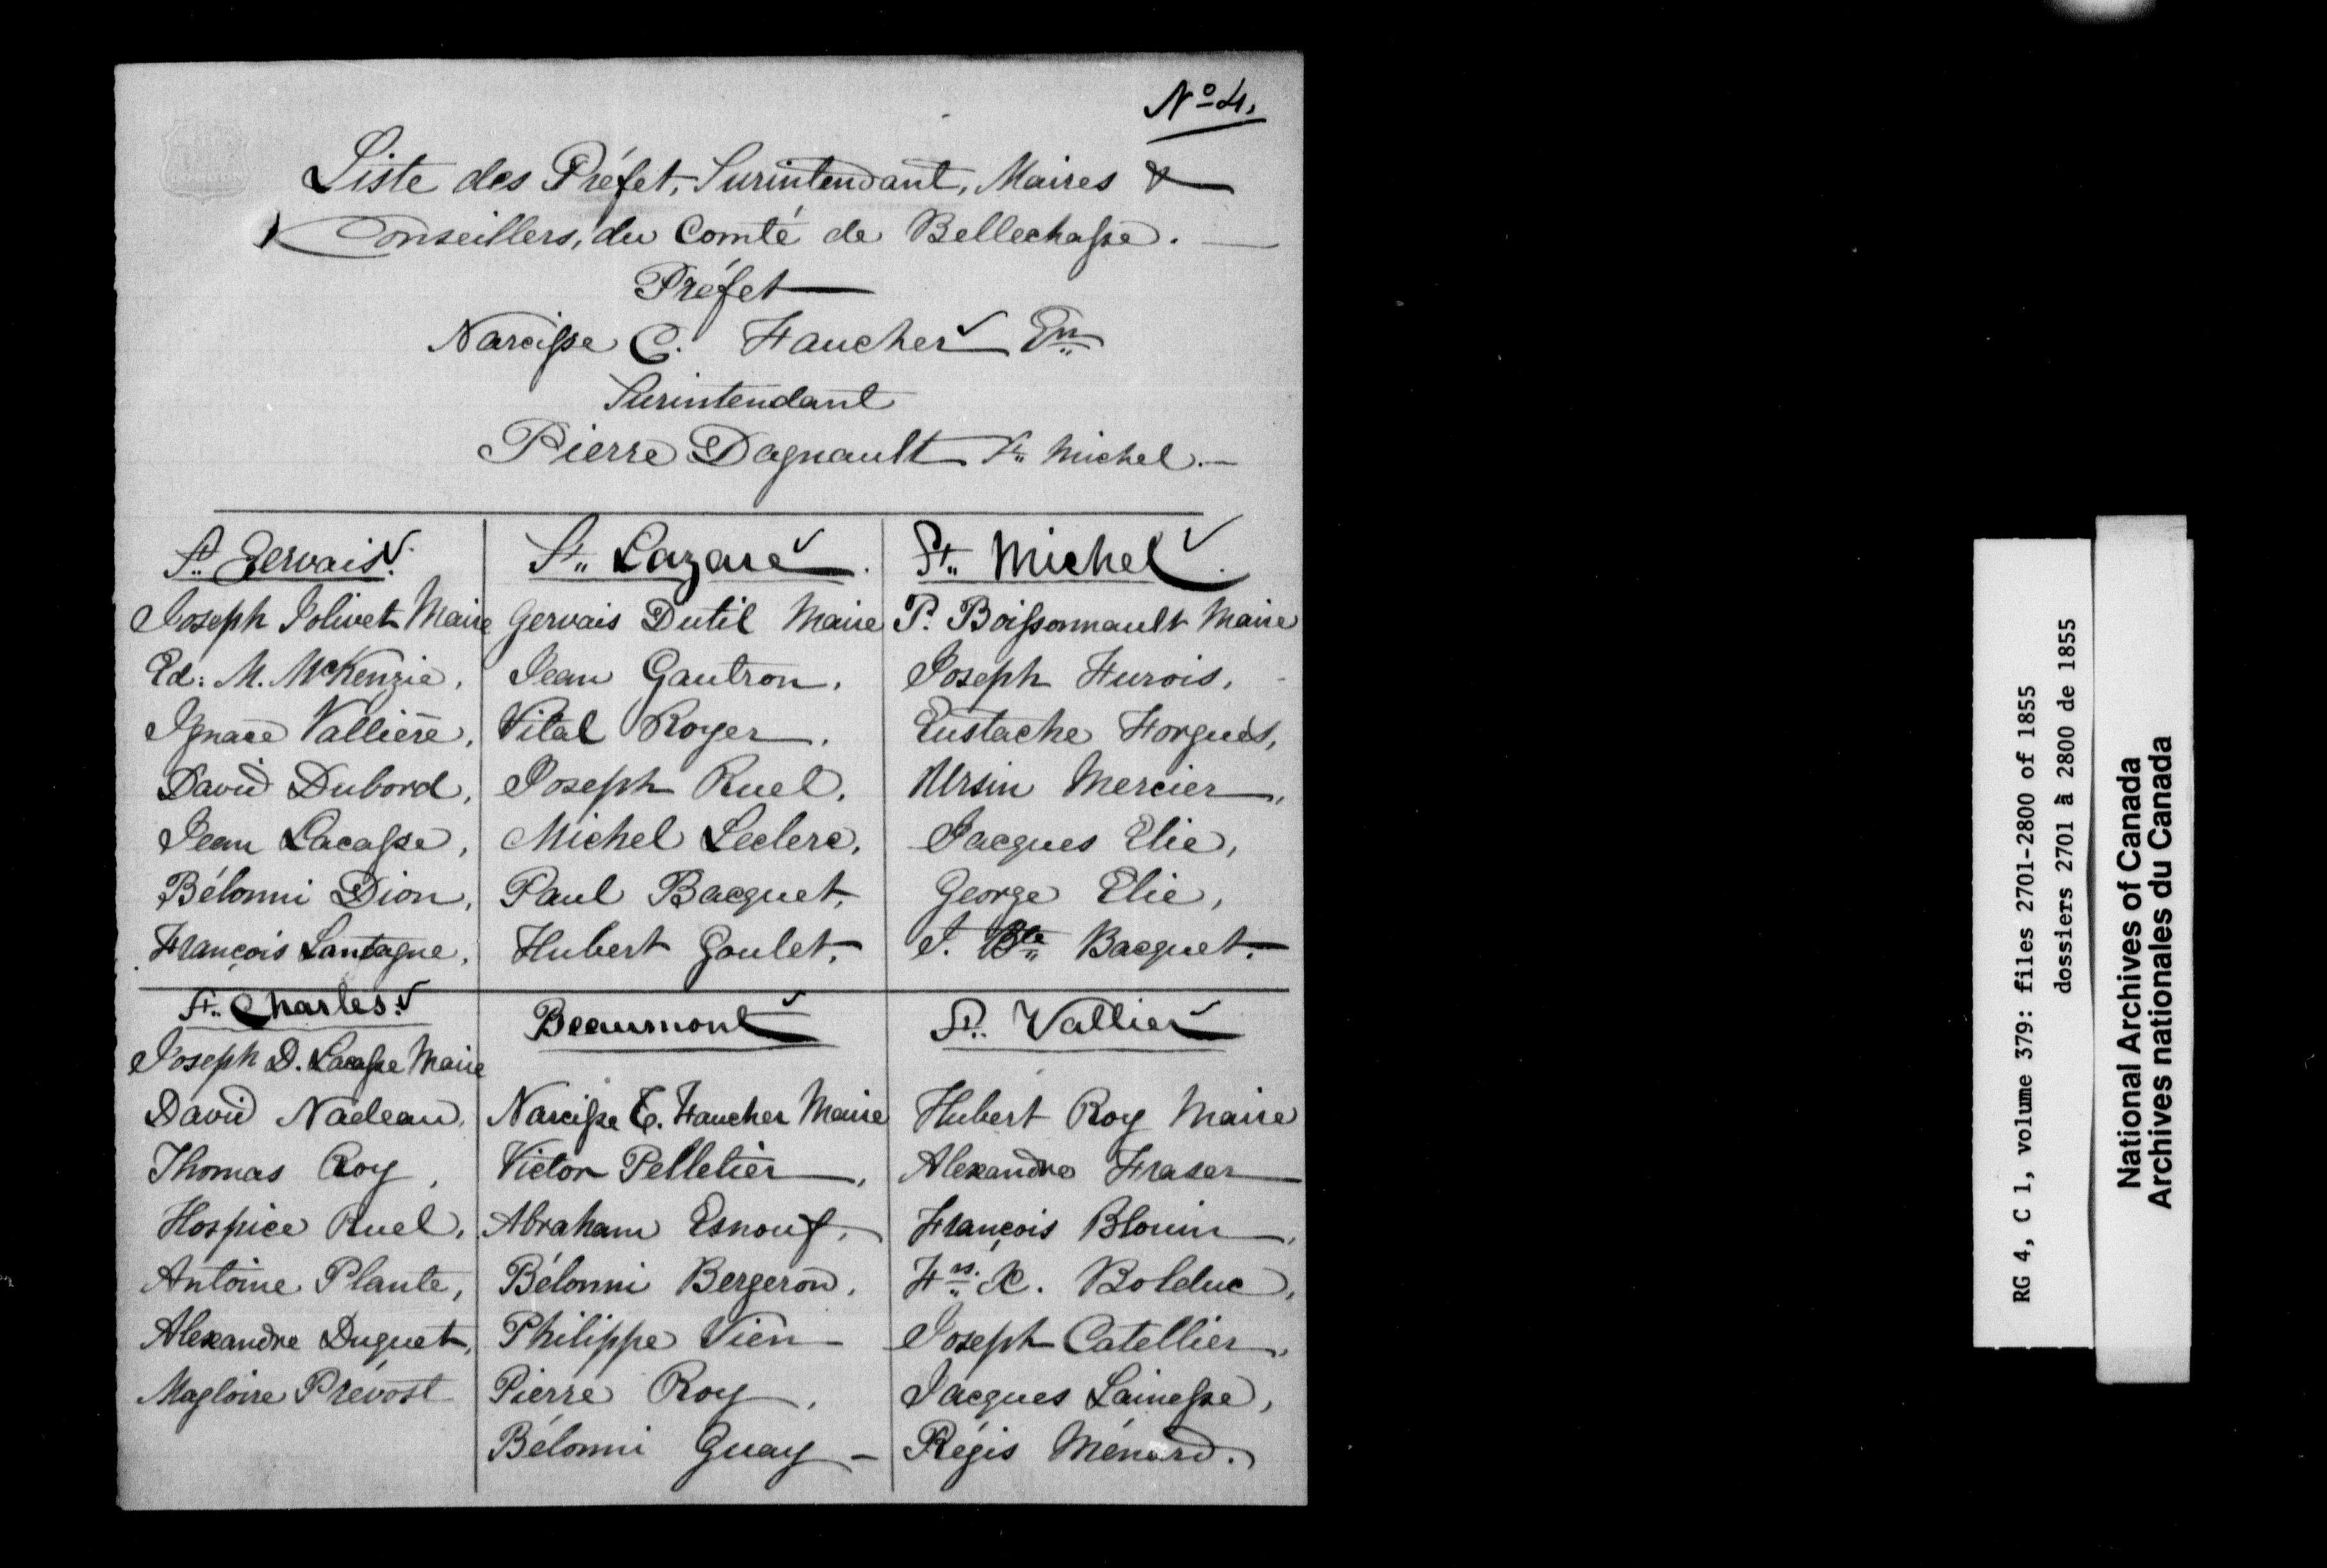 No 4.
Liste des Préfet, Surintendant, Maires &
Conseillers, du Comté de Bellechasse.
Préfet
Narcisse C. Faucher Ecr
Surintendant
Pierre Dagnault St. Michel.
St. Gervais.
Joseph Jolivet Maire
Ed: M. McKenzie,
Ignace Vallière,
David Dubord,
Jean Lacasse,
Bélonni Dion,
François Lantagne,
St. Lazare.
Gervais Dutil Maire
Jean Gautron,
Vital Royer,
Joseph Ruel,
Michel Leclerc,
Paul Bacquet,
Hubert Goulet,
St. Michel.
P. Boissonnault Maire
Joseph Furois,
Eustache Forgues,
Ursin Mercier,
Jacques Elie,
George Elie,
J. Bte Bacquet.
St. Charles.
Joseph D. Lacasse Maire
David Nadeau,
Thomas Roy,
Hospice Ruel,
Antoine Plante,
Alexandre Duquet,
Magloire Prévost
Beaumont
Narcisse C. Faucher Maire
Victor Pelletier,
Abraham Esnouf,
Bélonni Bergeron,
Philippe Vien
Pierre Roy,
Bélonni Guay
St. Vallier
Hubert Roy Maire
Alexandre Fraser
François Blouin,
Frs. X. Bolduc,
Joseph Catellier,
Jacques Lainesse,
Régis Ménard.
RG 4, C 1, volume 379: files 2701-2800 of 1855
dossiers 2701 à 2800 de 1855
National Archives of Canada
Archives nationales du Canada